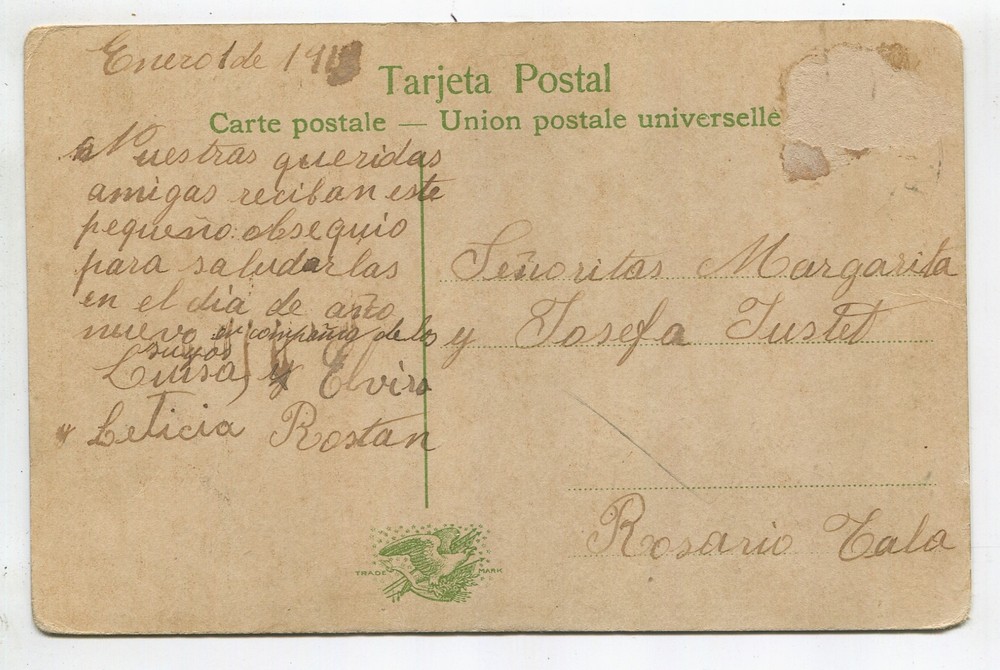 Enero 1 de 191
Tarjeta Postal
Carte postale — Union postale universelle
Nuestras queridas
amigas reciban este
pequeño obsequio
para saludarlas
en el dia de año
nuevo en compañia de los
suyos
Luisa, y Elvira
y Leticia Rostan
Señoritas Margarita
y Josefa Justet
Rosario Tala
TRADE MARK